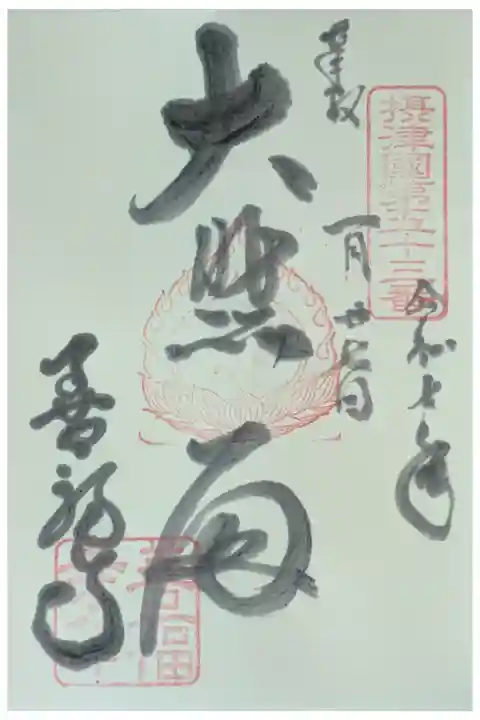 摂津國第五十三番
令和七年
奉拝
一月廿七日
大照
善福寺